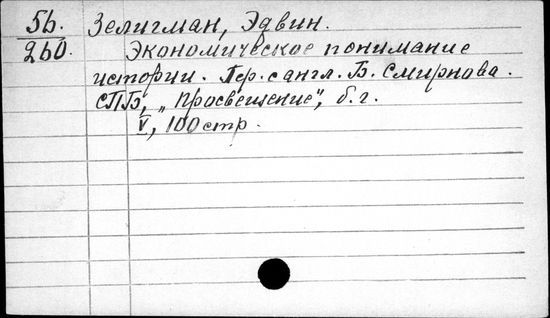 56. Зелигман, Эдвин.
260. Экономическое понимание
истории. Пер. с англ. Б. Смирнова.
СПБ, „Просвещение", б.г.
V, 100 стр.